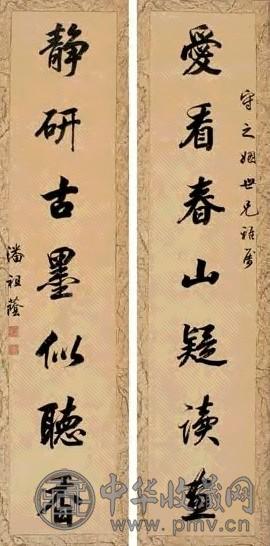 守之姻世兄雅屬
愛看春山疑讀畫
静研古墨似聽香
潘祖蔭
中华收藏网
www.pmv.cn